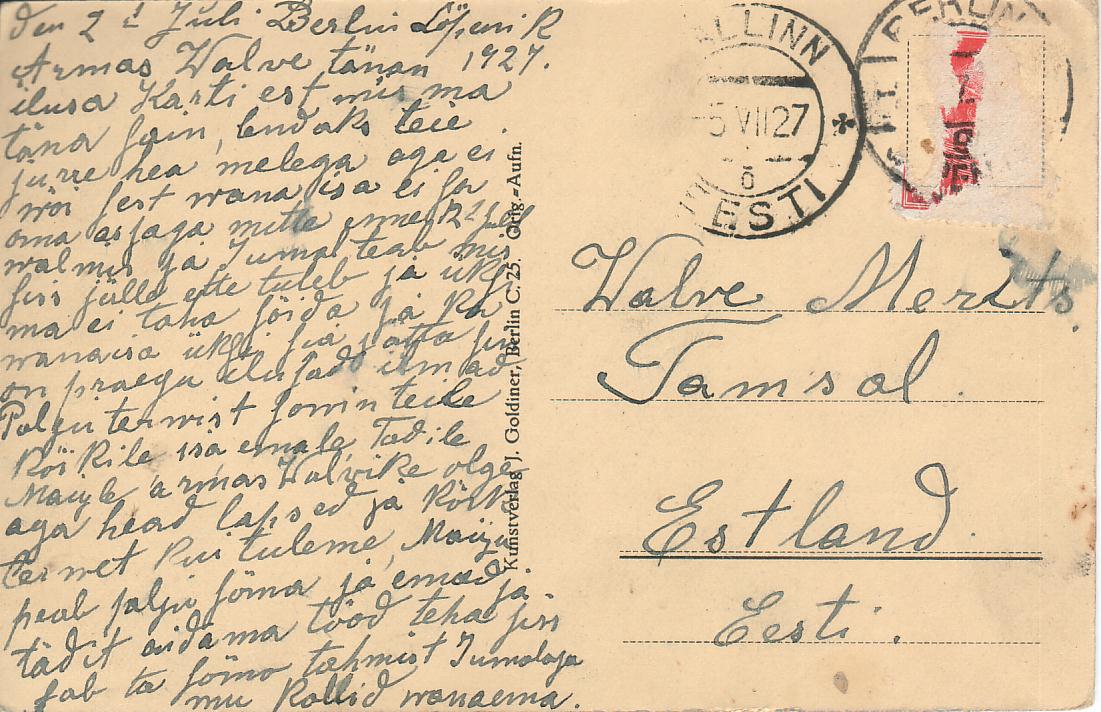 Den 2 d Juli Berlin Cöpenik
1927.
Armas Walve tänan
ilusa Karti est mis ma
täna sain, lendaks teie
jurre hea melega aga ei
wõi sest wana isa ei sa
oma asjaga mitte enne 12 Juli
walmis ja Jumal teab mis
siss jälle ette tuleb ja üksi
ma ei taha sõida ja ka
wanaisa üksi sia jätta siin
on praega ilusad ilmad
Palju terwist soowin teile
kõikile isa emale, Tädile
Maiyle armas Walwike olge
aga head lapsed ja kõik
terwet kui tuleme, Maiju
peab palju söma ja emad ja
tädit aidama tööd teha siss
sab ta sömo tahmist Jumalaga
mu Kallid wanaema.
Kunstverlag J. Goldiner, Berlin C. 25. Orig.-Aufn.
TALLINN
-5 VII 27
ESTI
BERLIN
Walve Merits.
Tamsal.
Estland
Eesti.